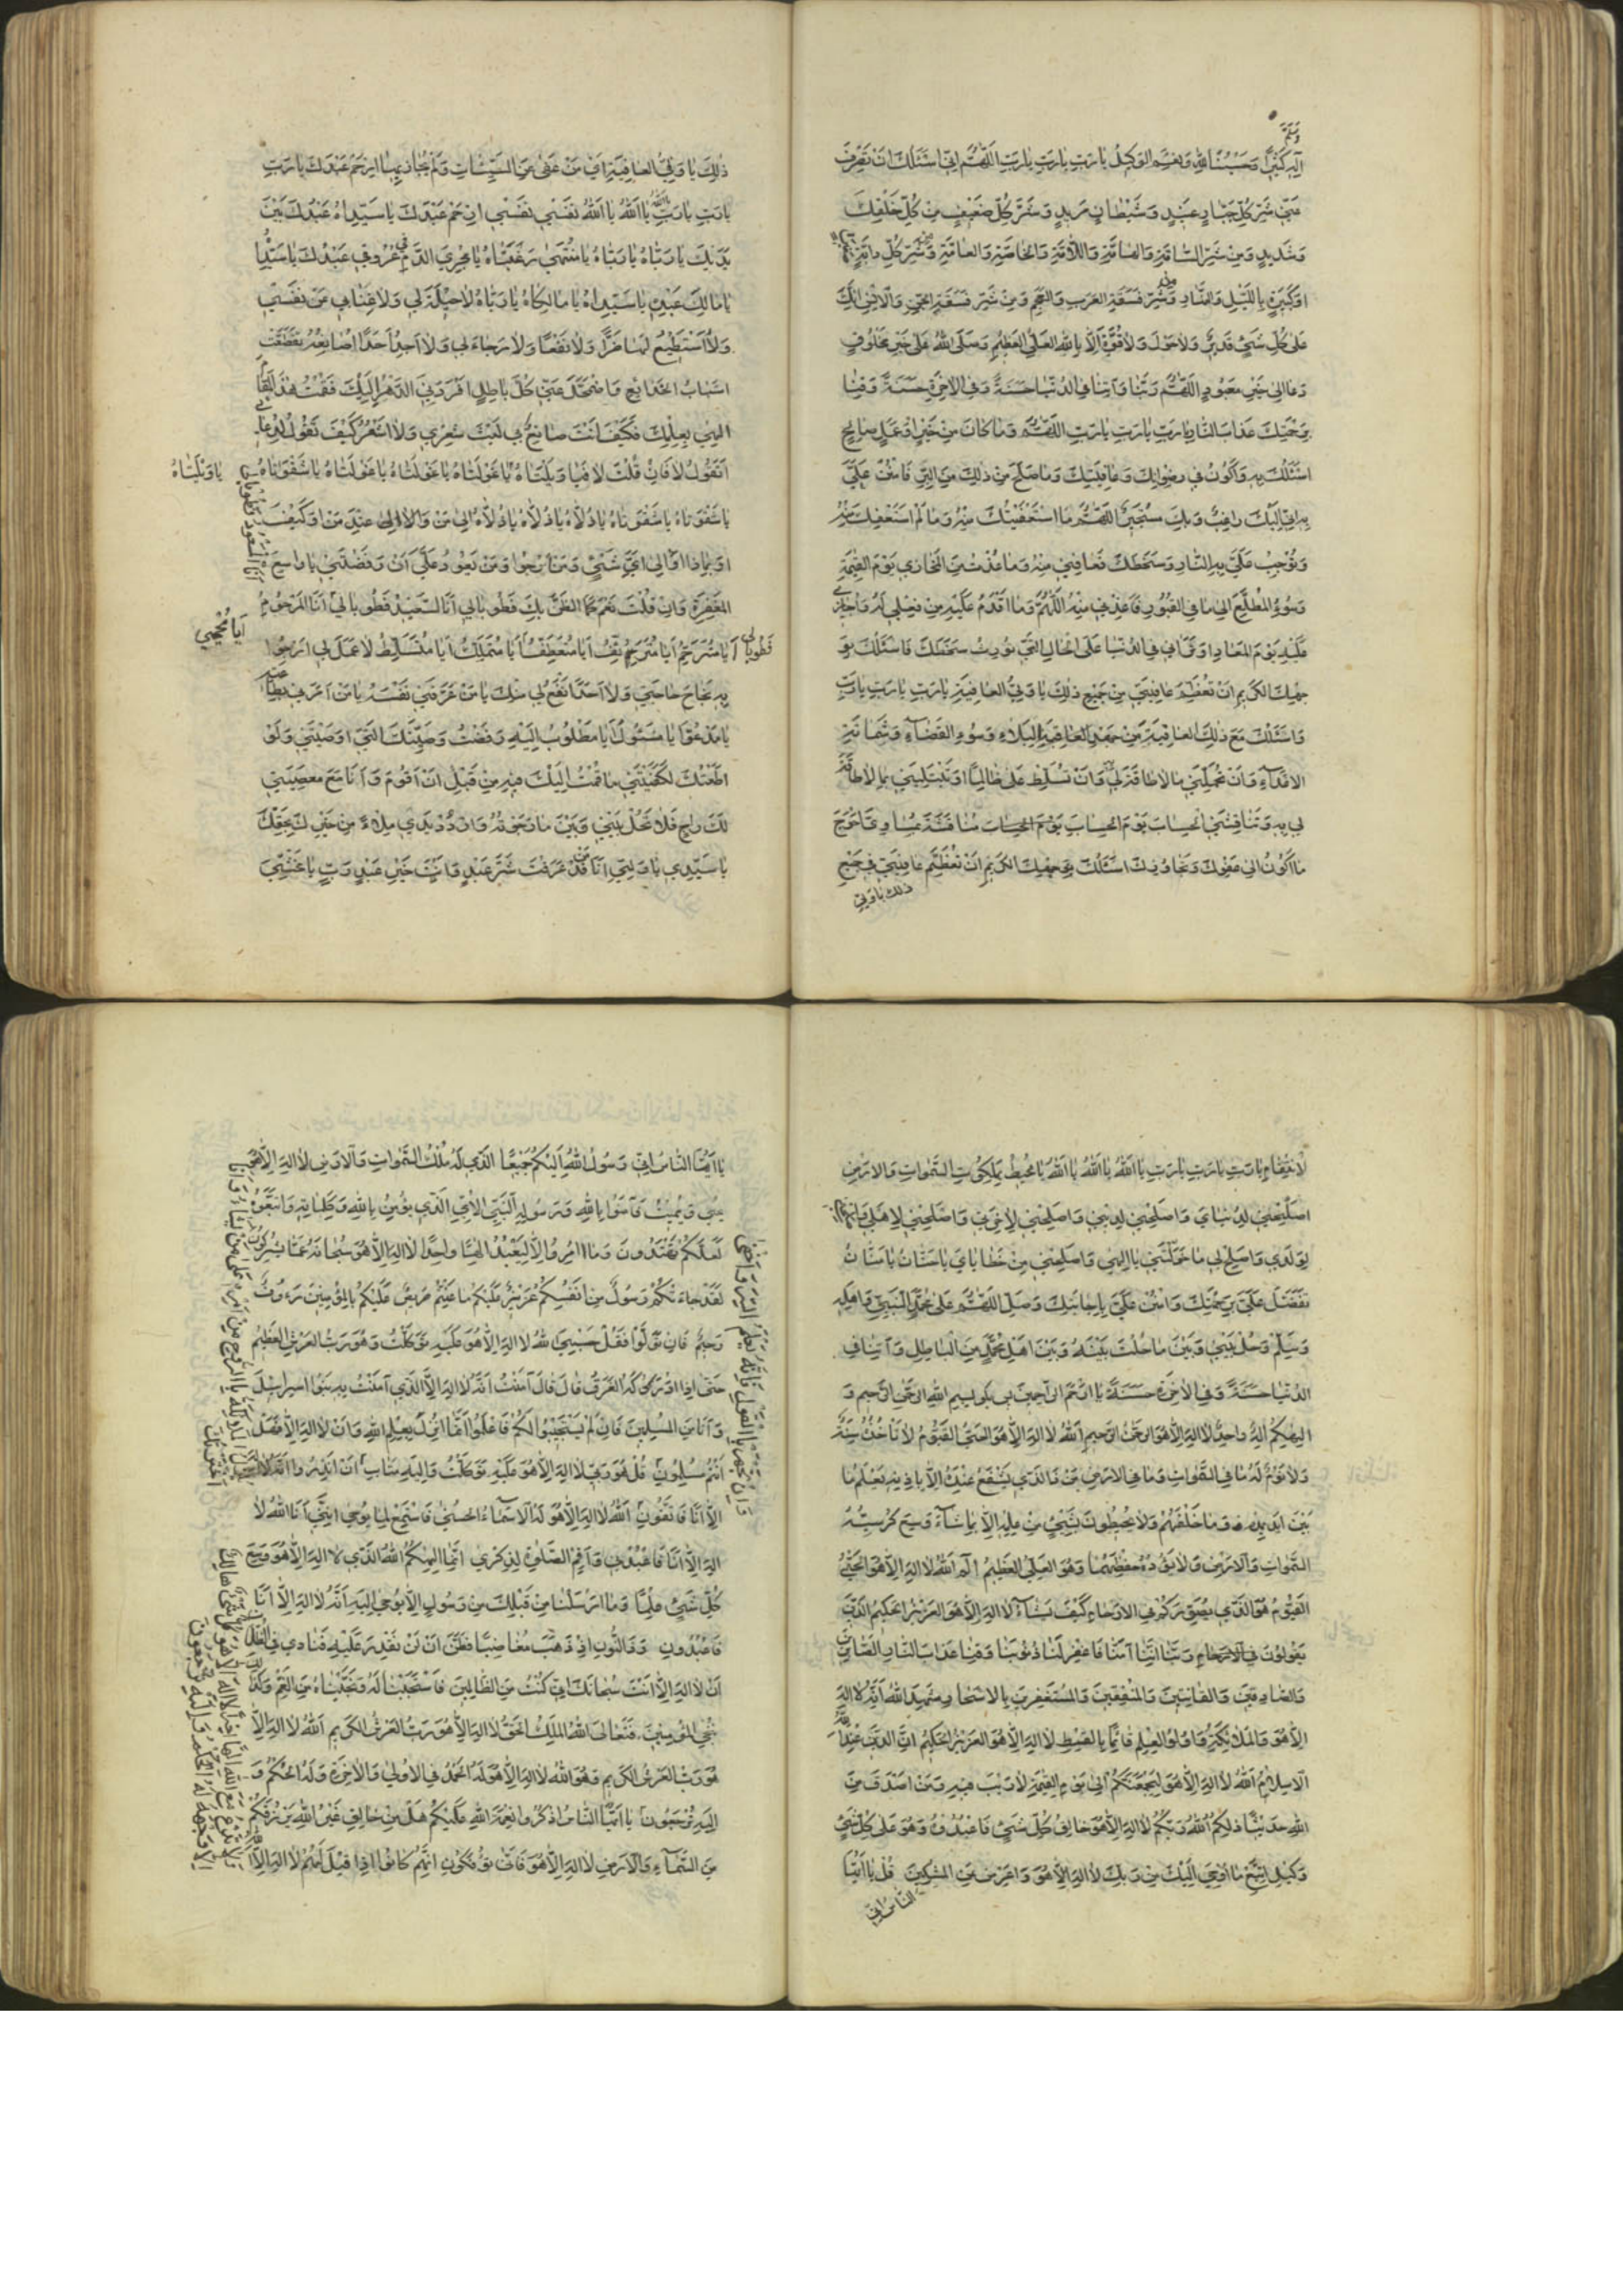 وسلم
آله كثيرا وحسبنا الله ونعم الوكيل يا رب يا رب يا رب اللهم اني اسئلك ان تصرف
عني شر كل جبار عنيد وشيطان مريد وشر كل ضعيف من خلقك
وشديد ومن شر السامة والهامة واللامة والخاصة والعامة ومن شر كل دابة صغيرة
او كبيرة بالليل والنهار ومن شر فسقة العرب والعجم ومن شر فسقة الجن والانس انك
على كل شيء قدير ولا حول ولا قوة الا بالله العلي العظيم وصلى الله على خير مخلوق
دعا الى خير معبود اللهم ربنا وآتنا في الدنيا حسنة وفي الاخرة حسنة وقنا
برحمتك عذاب النار يا رب يا رب يا رب اللهم وما كان من خير او عمل صالح
اسئلك به واكون في رضوانك وعافيتك وما صلح من ذلك من البر فامنن علي
به اني اليك راغب وبك مستجير اللهم ما استعفيتك منه وما لم استعفك منه
وتوجب علي به النار وسخطك فعافني منه وما عذت من المخازي يوم القيمة
وسوء المطلع الى ما في القبور فاعذني منه اللهم وما اقدم عليه من فعلي او اجازى
عليه يوم المعاد او تراني في الدنيا على الحال التي تورث سخطك فاسئلك بو
جهك الكريم ان تعظم عافيتي من جميع ذلك يا ولي العافية يا رب يا رب يا رب
واسئلك مع ذلك العافية من جهد البلاء وسوء القضاء وشماتة
الاعداء وان تحملني ما لا طاقة لي به وان تسلط علي ظالما او تبتليني بما لا طاقة
لي به وتناقشني الحساب يوم الحساب مناقشة بمساوي احوج
ما اكون الى عفوك وتجاوزك اسئلك بوجهك الكريم ان تعظم عافيتي في جميع
ذلك يا ولي
ذلك يا ولي العافية اي من عفى عن السيئات ولم يجاز بها ارحم عبدك يا رب
يا رب يا رب يا الله يا الله نفسي نفسي ارحم عبدك يا سيداه عبدك بين
يديك يا رباه يا رباه يا منتهى رغبتاه يا مجري الدم في عروقي عبدك يا سيداه
يا مالك عبده يا سيداه يا مالكاه يا رباه لا حيلة لي ولا غنا بي عن نفسي
ولا استطيع لها ضرا ولا نفعا ولا رجاء لي ولا اجد احدا اصانعه تقطعت
اسباب الخدائع واضمحل عني كل باطل افردني الدهر اليك فقمت هذا المقام
الهي بعلمك فكيف انت صانع بي ليت شعري ولا اشعر كيف تقول لدعائي
اتقول لا فان قلت لا فيا ويلتاه يا عولتاه يا عولتاه يا عولتاه يا شقوتاه يا ويلتاه
يا شقوتاه يا شقوتاه يا ذلاه يا ذلاه يا ذلاه الى من والى عند من او كيف
او بماذا او الى اي شيء ومن ارجوا ومن يعود علي ان رفضتني يا واسع
المغفرة وان قلت نعم كما الظن بك فطوبى لي انا السعيد فطوبى لي انا المرحوم
فطوبى لي ايا مترحم ايا مترئف ايا متعطف ايا متملك ايا متسلط لا عمل لي ارجوا
ايا محيي
به نجاح حاجتي ولا احدا انفع لي منك يا من عرفني نفسه يا من امرني بطاعته
يا مدعو يا مسئول يا مطلوب اليه رفضت وصيتك التي اوصيتني ولو
اطعتك لكفيتني ما قمت اليك فيه من قبل ان اقوم وانا مع معصيتي
لك راج فلا تحل بيني وبين ما رجوته واردد يدي ملاء من خير لحقك
يا سيدي يا وليي انا من قد عرفت شر عبد وانت خير رب يا مخشي
الانتقام يا رب يا رب يا رب يا الله يا الله يا الله يا محيط بملكوت السموات والارض
اصلحني لدنياي واصلحني لديني واصلحني لاخرتي واصلحني لاهلي
لولدي واصلح لي ما خولتني يا الهي واصلحني من خطاياي يا حنان يا منان
تفضل علي برحمتك وامنن علي باجابتك وصل اللهم على محمد النبي واهله
وسلم وحل بيني وبين ما حلت بينه وبين اهل محمد من الباطل وآتنا في
الدنيا حسنة وفي الاخرة حسنة يا ارحم الراحمين بسم الله الرحمن الرحيم و
الهكم اله واحد لا اله الا هو الرحمن الرحيم الله لا اله الا هو الحي القيوم لا تاخذه سنة
ولا نوم له ما في السموات وما في الارض من ذا الذي يشفع عنده الا باذنه يعلم ما
بين ايديهم وما خلفهم ولا يحيطون بشيء من علمه الا بما شاء وسع كرسيه
السموات والارض ولا يؤده حفظهما وهو العلي العظيم الم الله لا اله الا هو الحي
القيوم هو الذي يصوركم في الارحام كيف يشاء لا اله الا هو العزيز الحكيم الذين
يقولون ربنا اننا آمنا فاغفر لنا ذنوبنا وقنا عذاب النار الصابرين
والصادقين والقانتين والمنفقين والمستغفرين بالاسحار شهد الله انه لا اله
الا هو والملائكة واولوا العلم قائما بالقسط لا اله الا هو العزيز الحكيم ان الدين عند الله
الاسلام الله لا اله الا هو ليجمعنكم الى يوم القيمة لا ريب فيه ومن اصدق من
الله حديثا ذلكم الله ربكم لا اله الا هو خالق كل شيء فاعبدوه وهو على كل شيء
وكيل اتبع ما اوحي اليك من ربك لا اله الا هو واعرض عن المشركين قل يا ايها
الناس اني
يا ايها الناس اني رسول الله اليكم جميعا الذي له ملك السموات والارض لا اله الا هو
يحيي ويميت فآمنوا بالله ورسوله النبي الامي الذي يؤمن بالله وكلماته واتبعوه
لعلكم تهتدون وما امروا الا ليعبدوا الها واحدا لا اله الا هو سبحانه عما يشركون
لقد جاءكم رسول من انفسكم عزيز عليه ما عنتم حريص عليكم بالمؤمنين رءوف
رحيم فان تولوا فقل حسبي الله لا اله الا هو عليه توكلت وهو رب العرش العظيم
حتى اذا ادركه الغرق قال آمنت انه لا اله الا الذي آمنت به بنوا اسرائيل
وانا من المسلمين فان لم يستجيبوا لكم فاعلموا انما انزل بعلم الله وان لا اله الا هو فهل
انتم مسلمون قل هو ربي لا اله الا هو عليه توكلت واليه متاب ان انذروا انه لا اله
الا انا فاتقون الله لا اله الا هو له الاسماء الحسنى فاستمع لما يوحى انني انا الله لا
اله الا انا فاعبدني واقم الصلوة لذكري انما الهكم الله الذي لا اله الا هو وسع
كل شيء علما وما ارسلنا من قبلك من رسول الا يوحى اليه انه لا اله الا انا
فاعبدون وذا النون اذ ذهب مغاضبا فظن ان لن نقدر عليه فنادى في الظلمات
ان لا اله الا انت سبحانك اني كنت من الظالمين فاستجبنا له ونجيناه من الغم وكذلك
ننجي المؤمنين فتعالى الله الملك الحق لا اله الا هو رب العرش الكريم الله لا اله الا
هو رب العرش الكريم وهو الله لا اله الا هو له الحمد في الاولى والاخرة وله الحكم و
اليه ترجعون يا ايها الناس اذكروا نعمة الله عليكم هل من خالق غير الله يرزقكم
من السماء والارض لا اله الا هو فانى تؤفكون انهم كانوا اذا قيل لهم لا اله الا
وان تجهر بالقول فانه يعلم السر واخفى
ينزل الملائكة بالروح من امره على من يشاء من
ولا تدع مع الله الها آخر لا اله الا هو كل شيء هالك
الا وجهه له الحكم واليه ترجعون